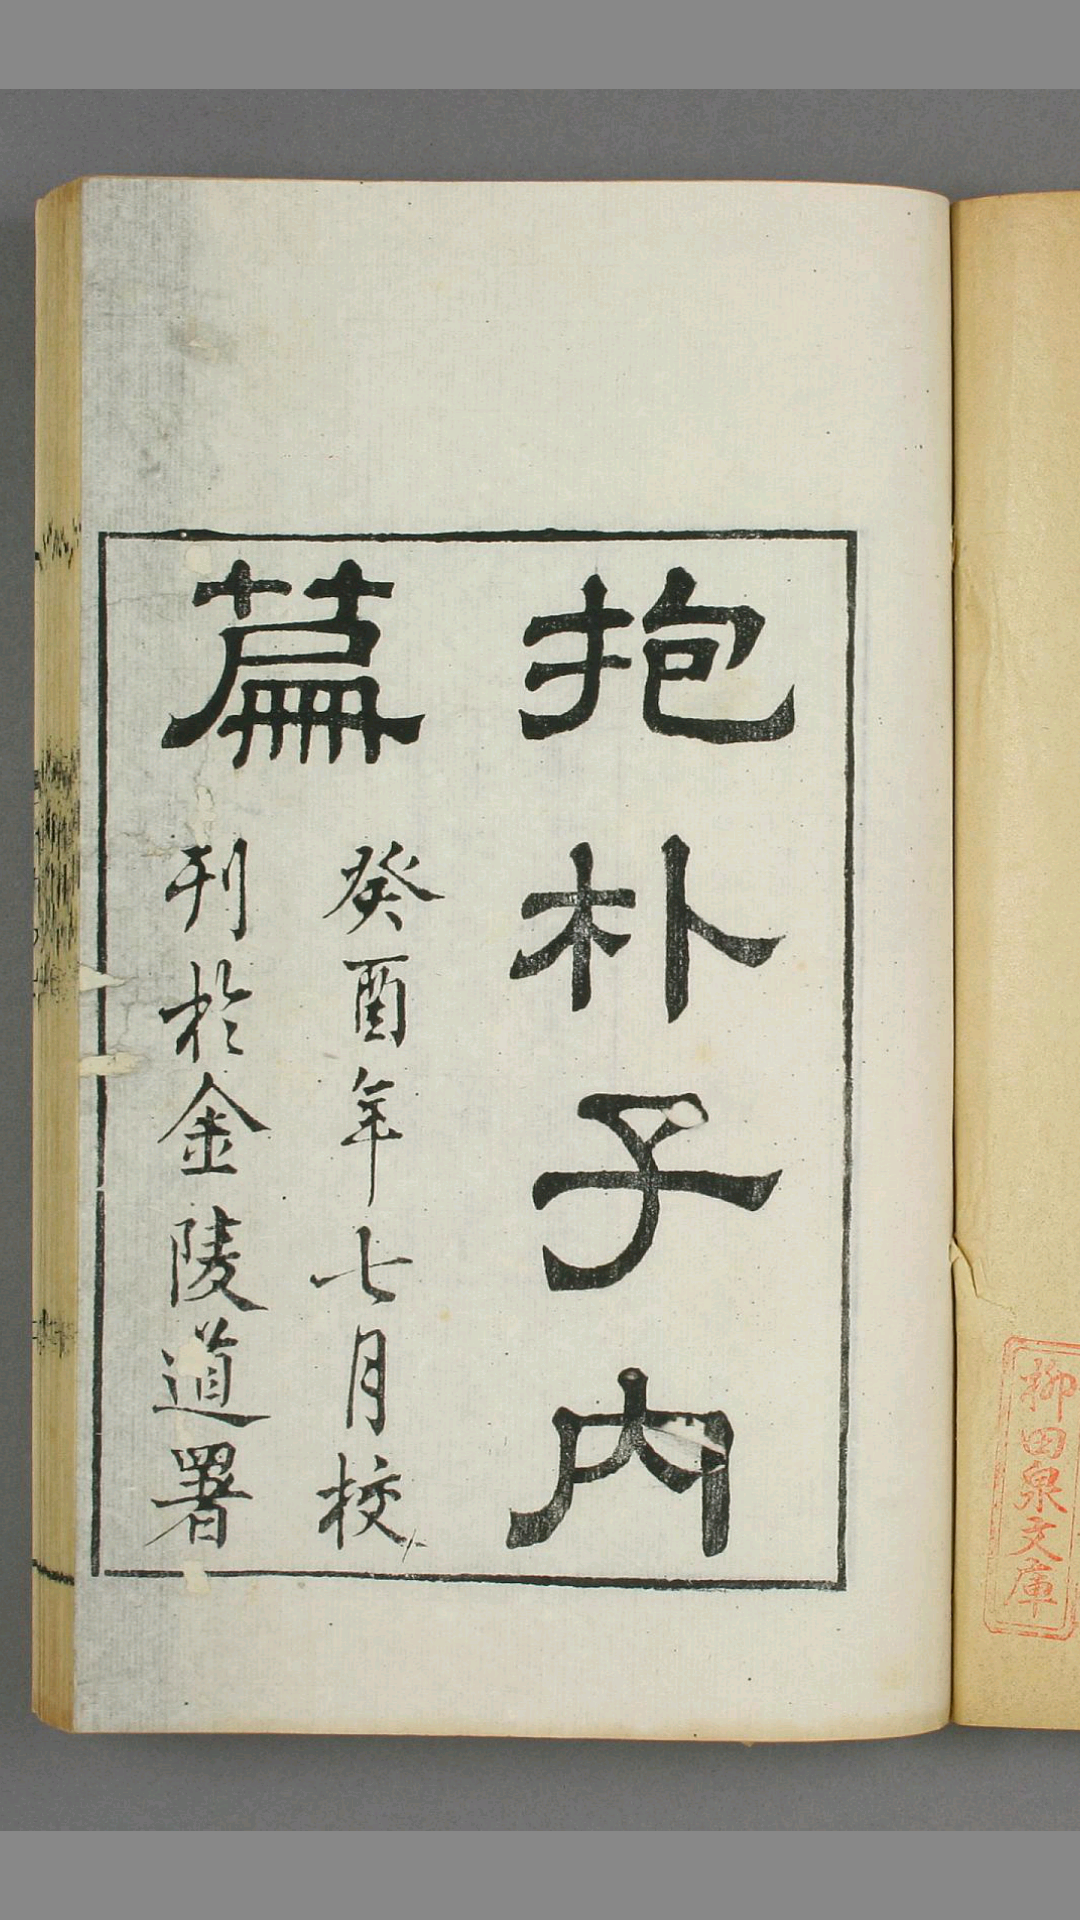 柳田泉文庫
抱朴子内
篇
癸酉年七月校
刊於金陵道署